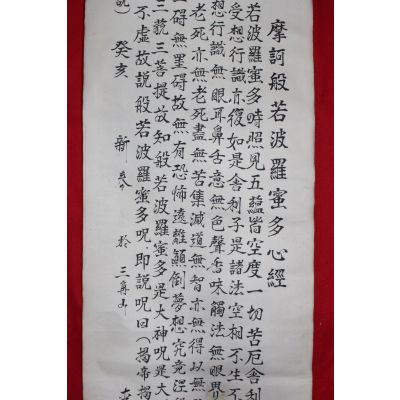 摩訶般若波羅蜜多心經
若波羅蜜多時照見五蘊皆空度一切苦厄舍利
受想行識亦復如是舍利子是諸法空相不生不
想行識無眼耳鼻舌意無色聲香味觸法無眼界
老死亦無老死盡無苦集滅道無智亦無得以無
碍無罣碍故無有恐怖遠離顛倒夢想究竟涅
三藐三菩提故知般若波羅蜜多是大神呪是大
不虛故説般若波羅蜜多呪即説呪曰(揭帝揭
) 癸亥 新 於 三角山